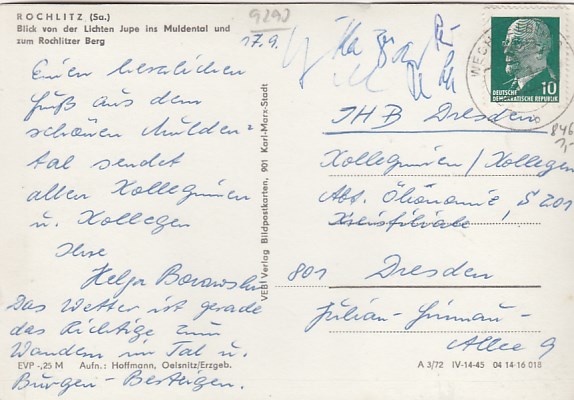 ROCHLITZ (Sa.)
Blick von der Lichten Jupe ins Muldental und
zum Rochlitzer Berg
9290
17.9.
Einen herzlichen
Gruß aus dem
schönen Mulden=
tal sendet
allen Kolleginnen
u. Kollegen
Ihre
Helga
Das Wetter ist gerade
das Richtige zum
Wandern im Tal u.
Burgen-Besteigen.
EVP -,25 M Aufn.: Hoffmann, Oelsnitz/Erzgeb.
VEB Verlag Bildpostkarten, 901 Karl-Marx-Stadt
DEUTSCHE
DEMOKRATISCHE REPUBLIK
10
WECH
846
1,-
IHB Dresden
Kolleginnen/Kollegen
Abt. Ökonomie, § 201
Kreisfiliale
801 Dresden
Julian-Grimau-
Allee 9
A 3/72 IV-14-45 04 14-16 018